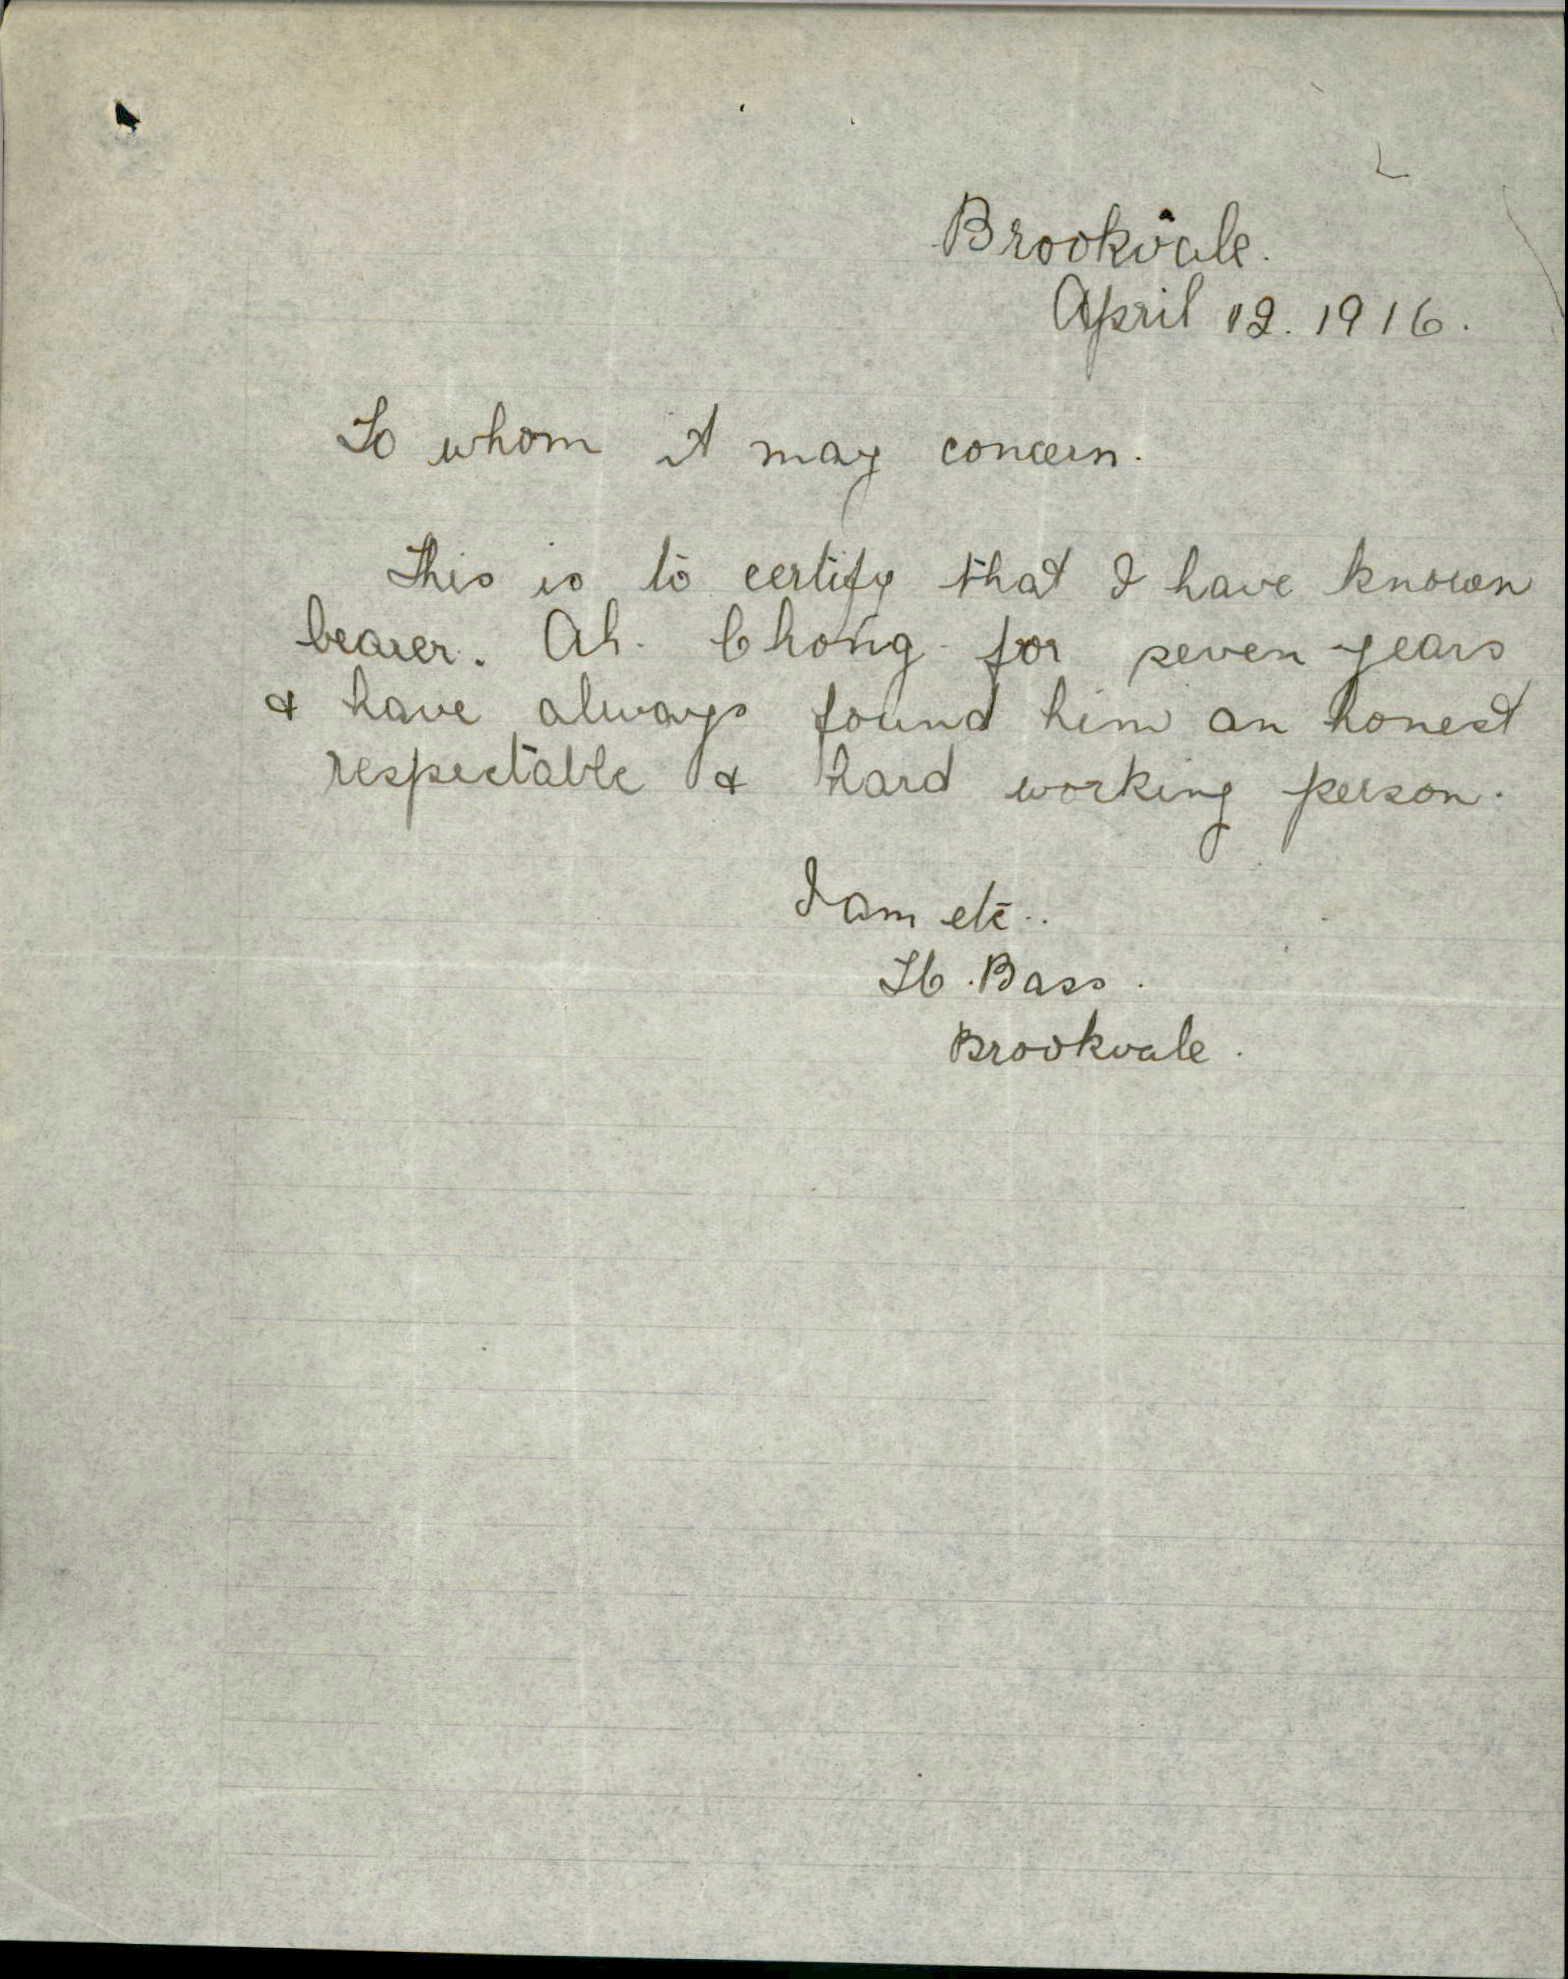 Brookvale.
April 12. 1916.
To whom it may concern.
This is to certify that I have known
bearer. Ah. Chong for seven years
& have always found him an honest
respectable & hard working person.
I am etc..
H. Bass.
Brookvale.